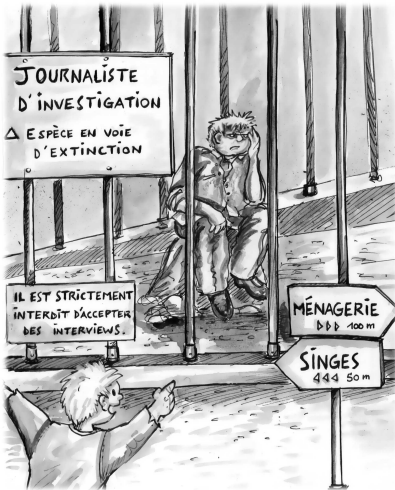 JOURNALISTE
D'INVESTIGATION
△ ESPÈCE EN VOIE
D'EXTINCTION
IL EST STRICTEMENT
INTERDIT D'ACCEPTER
DES INTERVIEWS.
MÉNAGERIE
▷▷▷ 100 m
SINGES
◁◁◁ 50 m